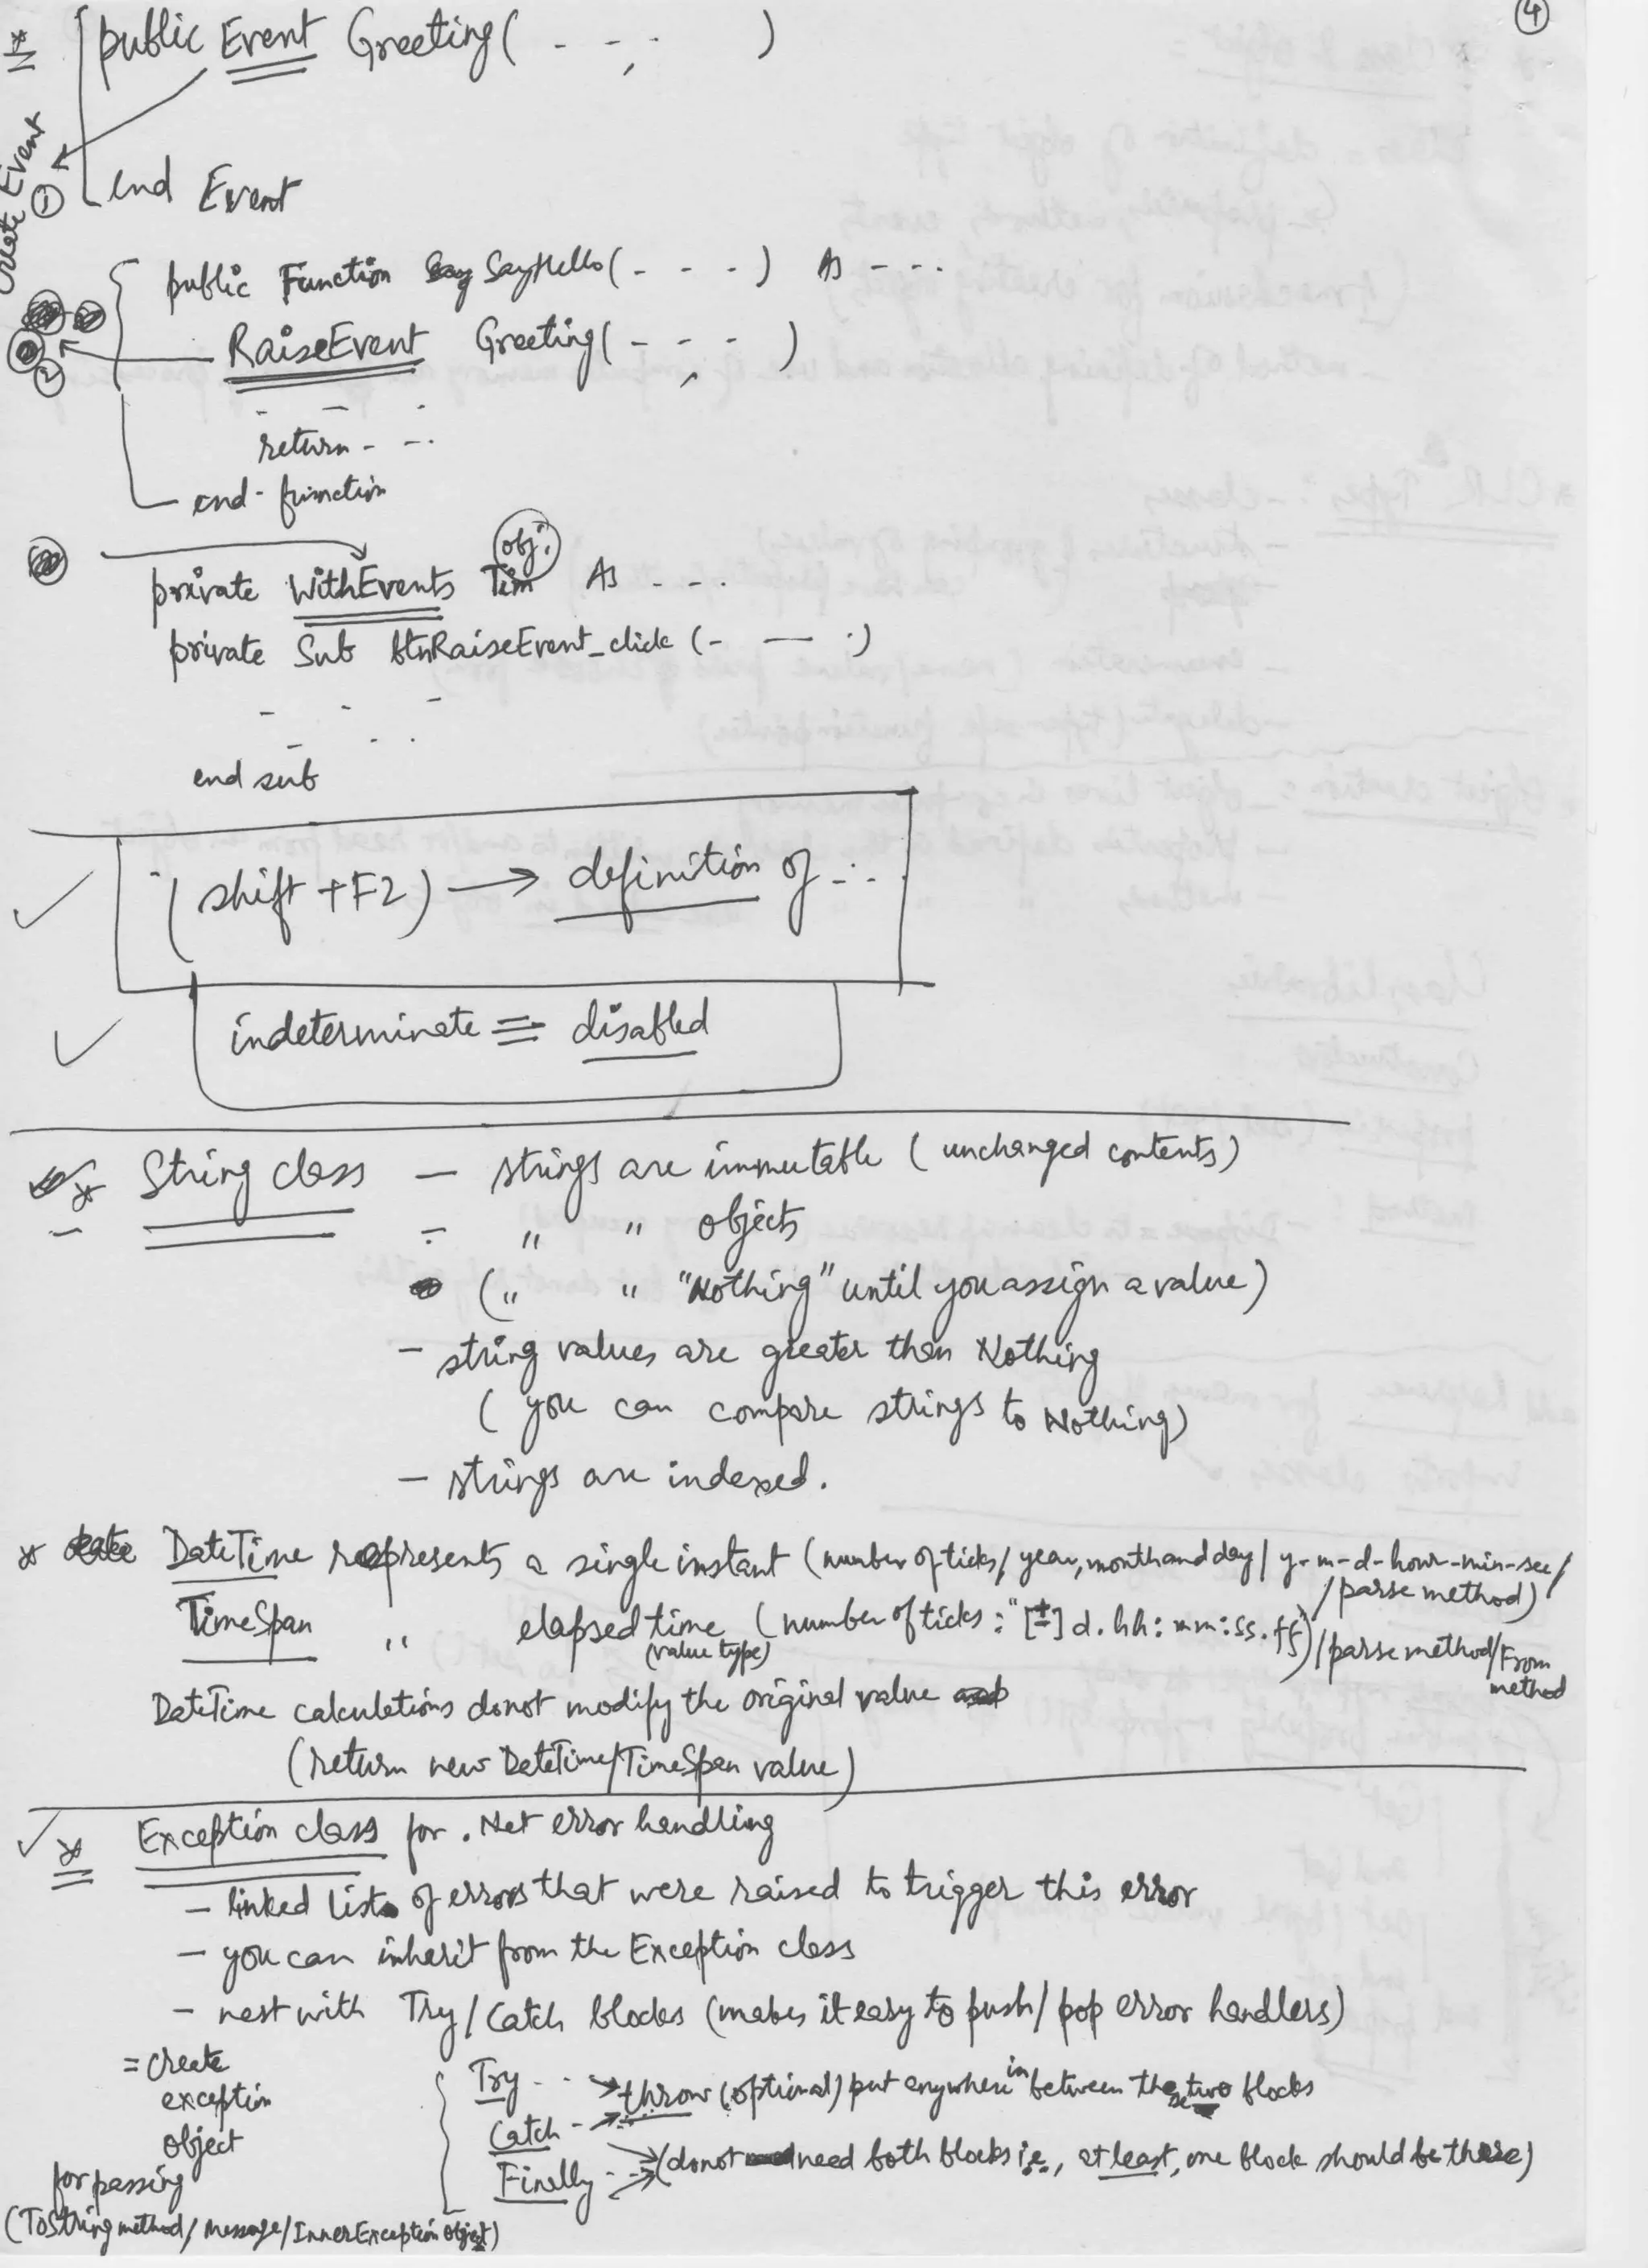 4
public Event Greeting( - - , . )
Create Event
1
end Event
public Function SayHello( - - - ) As - - - .
RaiseEvent Greeting( - - , - )
2
- - .
return - - - .
end - function
obj:
private WithEvents Tim As - - - .
private Sub btnRaiseEvent_click ( - — . )
- - -
- . .
end sub
(shift + F2) → definition of - - .
indeterminate ≡ disabled
* String class — strings are immutable ( unchanged contents)
- " " objects
( " " "Nothing" until you assign a value)
- string values are greater than Nothing
( you can compare strings to Nothing)
- strings are indexed.
* DateTime represents a single instant (number of ticks/ year, month and day/ y-m-d-hour-min-sec/
/parse method)
TimeSpan " elapsed time (number of ticks : "[±] d.hh:mm:ss.ff)/parse method/From
(value type)
method
DateTime calculations donot modify the original value
(return new DateTime/TimeSpan value)
* Exception class for .Net error handling
- linked list of errors that were raised to trigger this error
- you can inherit from the Exception class
- nest with Try/Catch blocks (makes it easy to push/pop error handlers)
= create
exception
object
for passing
(ToString method/message/InnerException object)
Try - - → throw (optional) put anywhere in between these two blocks
Catch - →
Finally - - → (donot need both blocks i.e., at least, one block should be there)